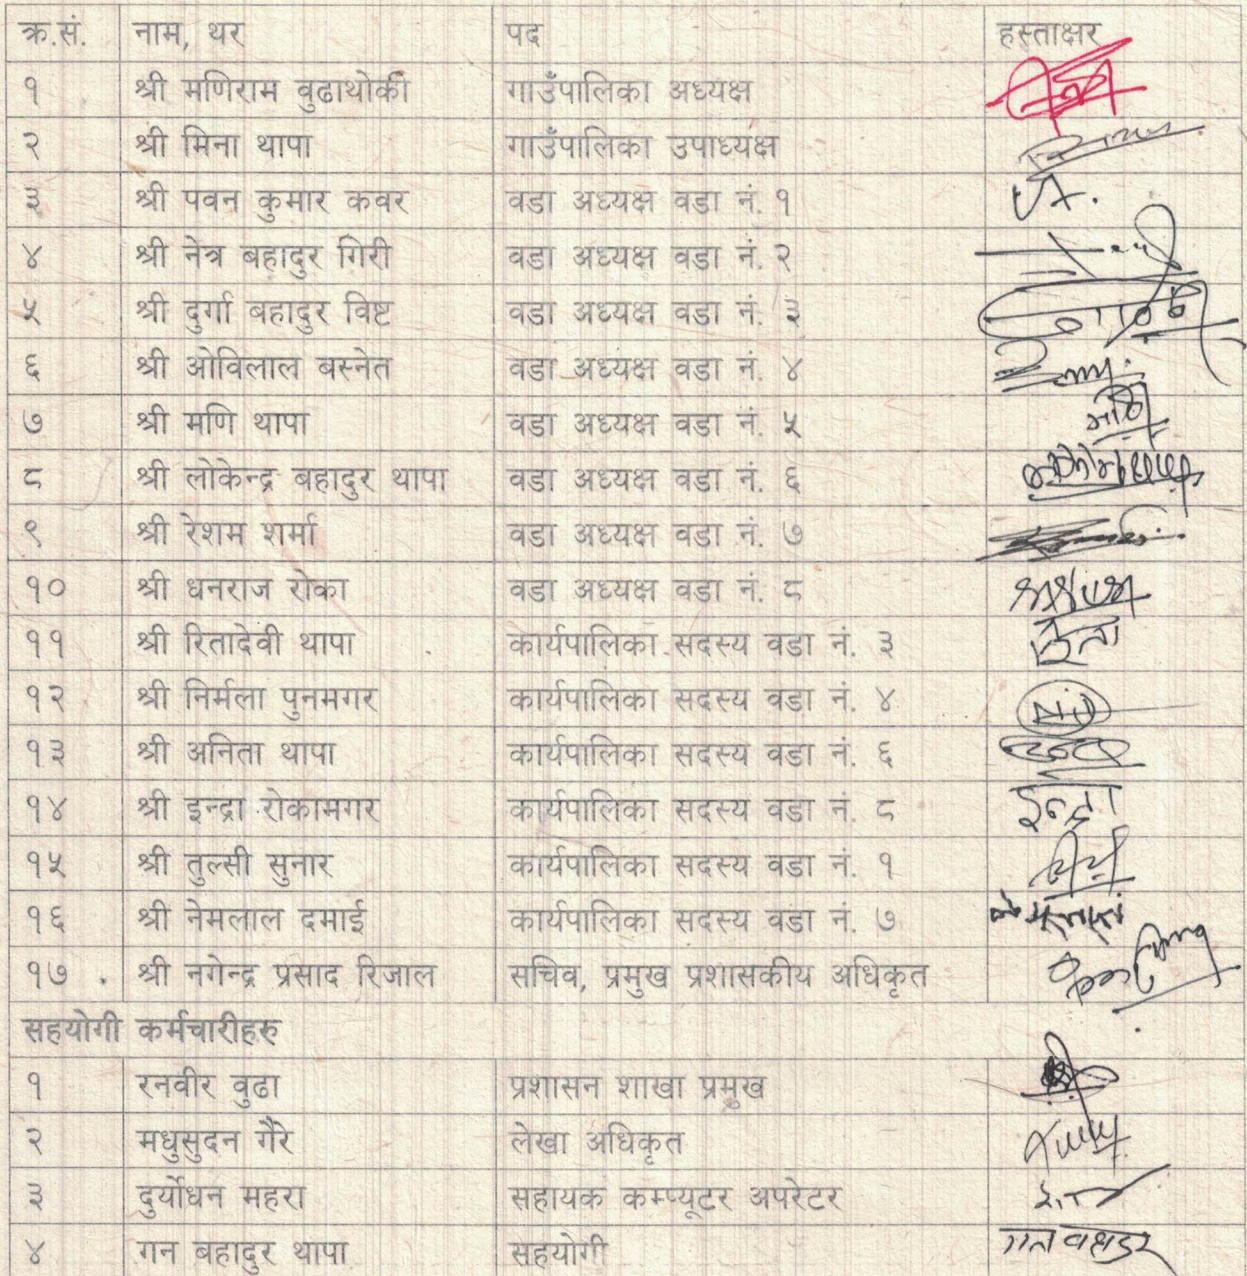 क्र.सं. नाम, थर पद हस्ताक्षर
१ श्री मणिराम वुढाथोकी गाउँपालिका अध्यक्ष
२ श्री मिना थापा गाउँपालिका उपाध्यक्ष
३ श्री पवन कुमार कवर वडा अध्यक्ष वडा नं. १
४ श्री नेत्र बहादुर गिरी वडा अध्यक्ष वडा नं. २
५ श्री दुर्गा बहादुर विष्ट वडा अध्यक्ष वडा नं. ३
६ श्री ओविलाल बस्नेत वडा अध्यक्ष वडा नं. ४
७ श्री मणि थापा वडा अध्यक्ष वडा नं. ५
८ श्री लोकेन्द्र बहादुर थापा वडा अध्यक्ष वडा नं. ६
९ श्री रेशम शर्मा वडा अध्यक्ष वडा नं. ७
१० श्री धनराज रोका वडा अध्यक्ष वडा नं. ८
११ श्री रितादेवी थापा कार्यपालिका सदस्य वडा नं. ३
१२ श्री निर्मला पुनमगर कार्यपालिका सदस्य वडा नं. ४
१३ श्री अनिता थापा कार्यपालिका सदस्य वडा नं. ६
१४ श्री इन्द्रा रोकामगर कार्यपालिका सदस्य वडा नं. ८ इन्द्रा
१५ श्री तुल्सी सुनार कार्यपालिका सदस्य वडा नं. १
१६ श्री नेमलाल दमाई कार्यपालिका सदस्य वडा नं. ७
१७ श्री नगेन्द्र प्रसाद रिजाल सचिव, प्रमुख प्रशासकीय अधिकृत
सहयोगी कर्मचारीहरु
१ रनवीर वुढा प्रशासन शाखा प्रमुख
२ मधुसुदन गैरे लेखा अधिकृत
३ दुर्योधन महरा सहायक कम्प्यूटर अपरेटर
४ गन बहादुर थापा सहयोगी